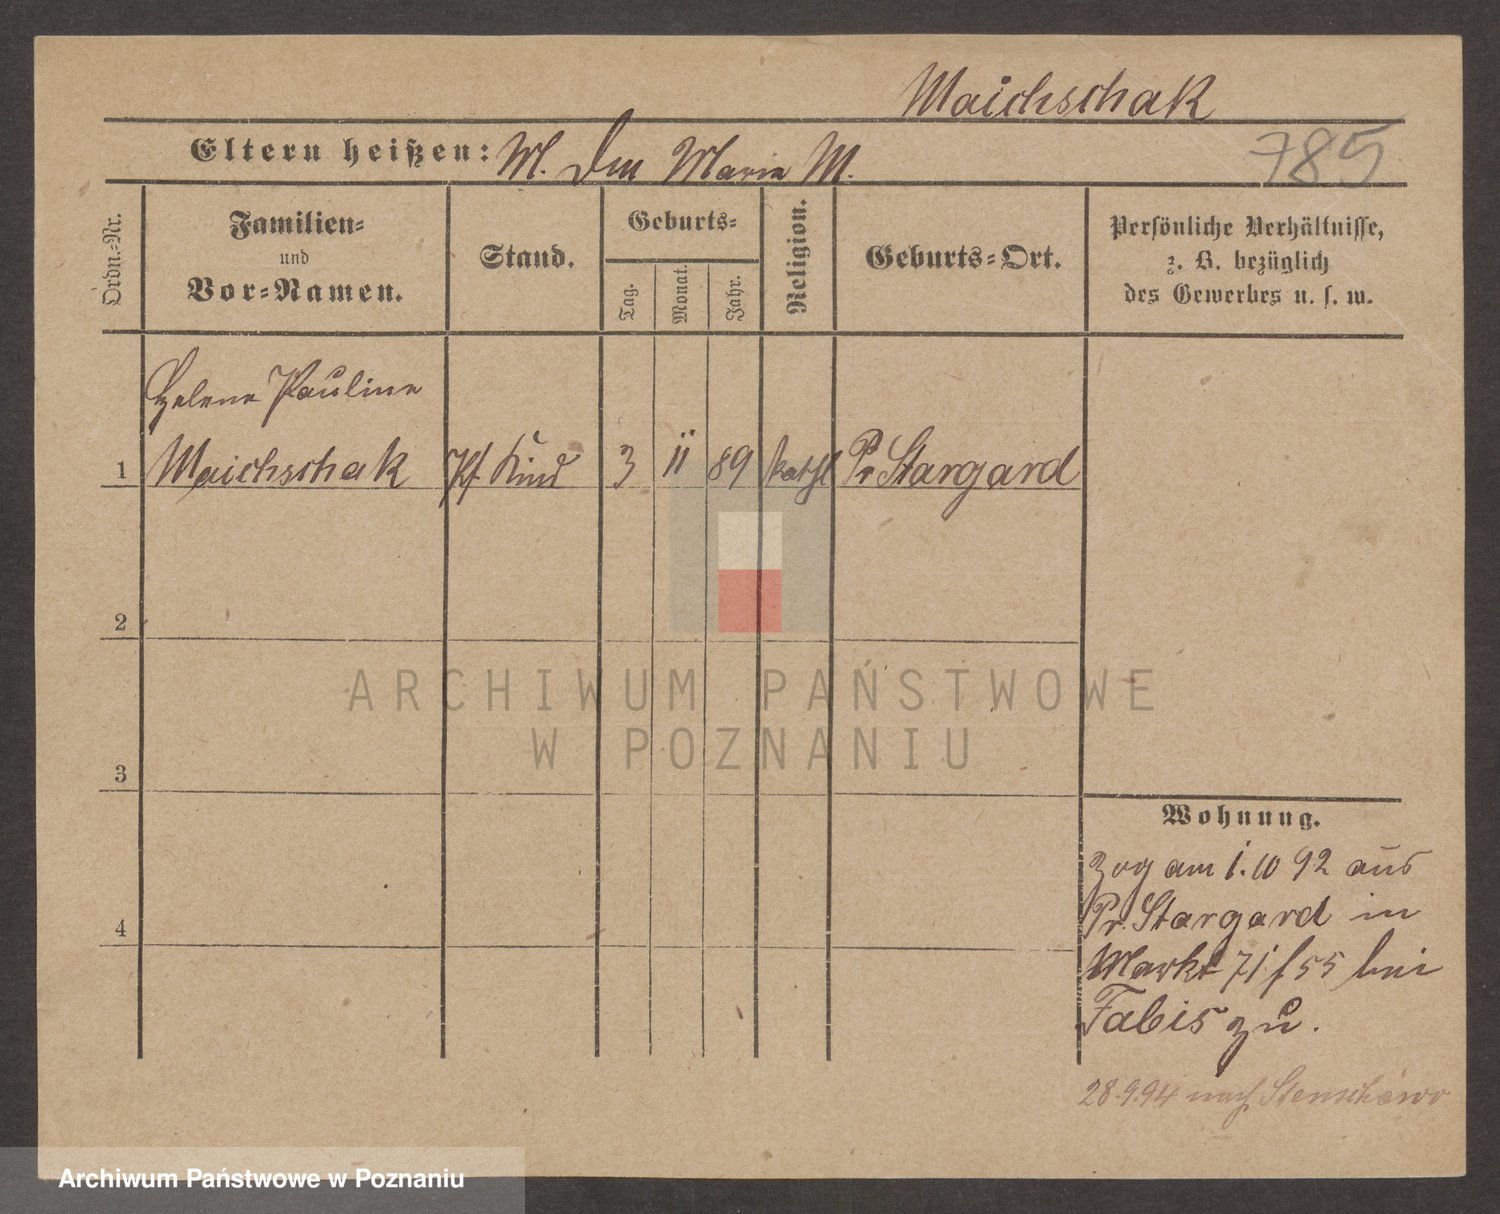 Maichschak
Eltern heißen: M. Marie M.
785
Ordn.-Nr.
Familien-
und
Vor-Namen.
Stand.
Geburts-
Tag.
Monat.
Jahr.
Religion.
Geburts-Ort.
Persönliche Verhältnisse,
z. B. bezüglich
des Gewerbes u. s. w.
Helene Pauline
1 Maichschak Pf Kind 3 11 89 kathl Pr Stargard
2
3
4
ARCHIWUM PAŃSTWOWE
W POZNANIU
Wohnung.
Zog am 1. 10 92 aus
Pr. Stargard in
Markt 71 / 55 bei
Fabis zu.
28.9.94 nach Stenschewo
Archiwum Państwowe w Poznaniu